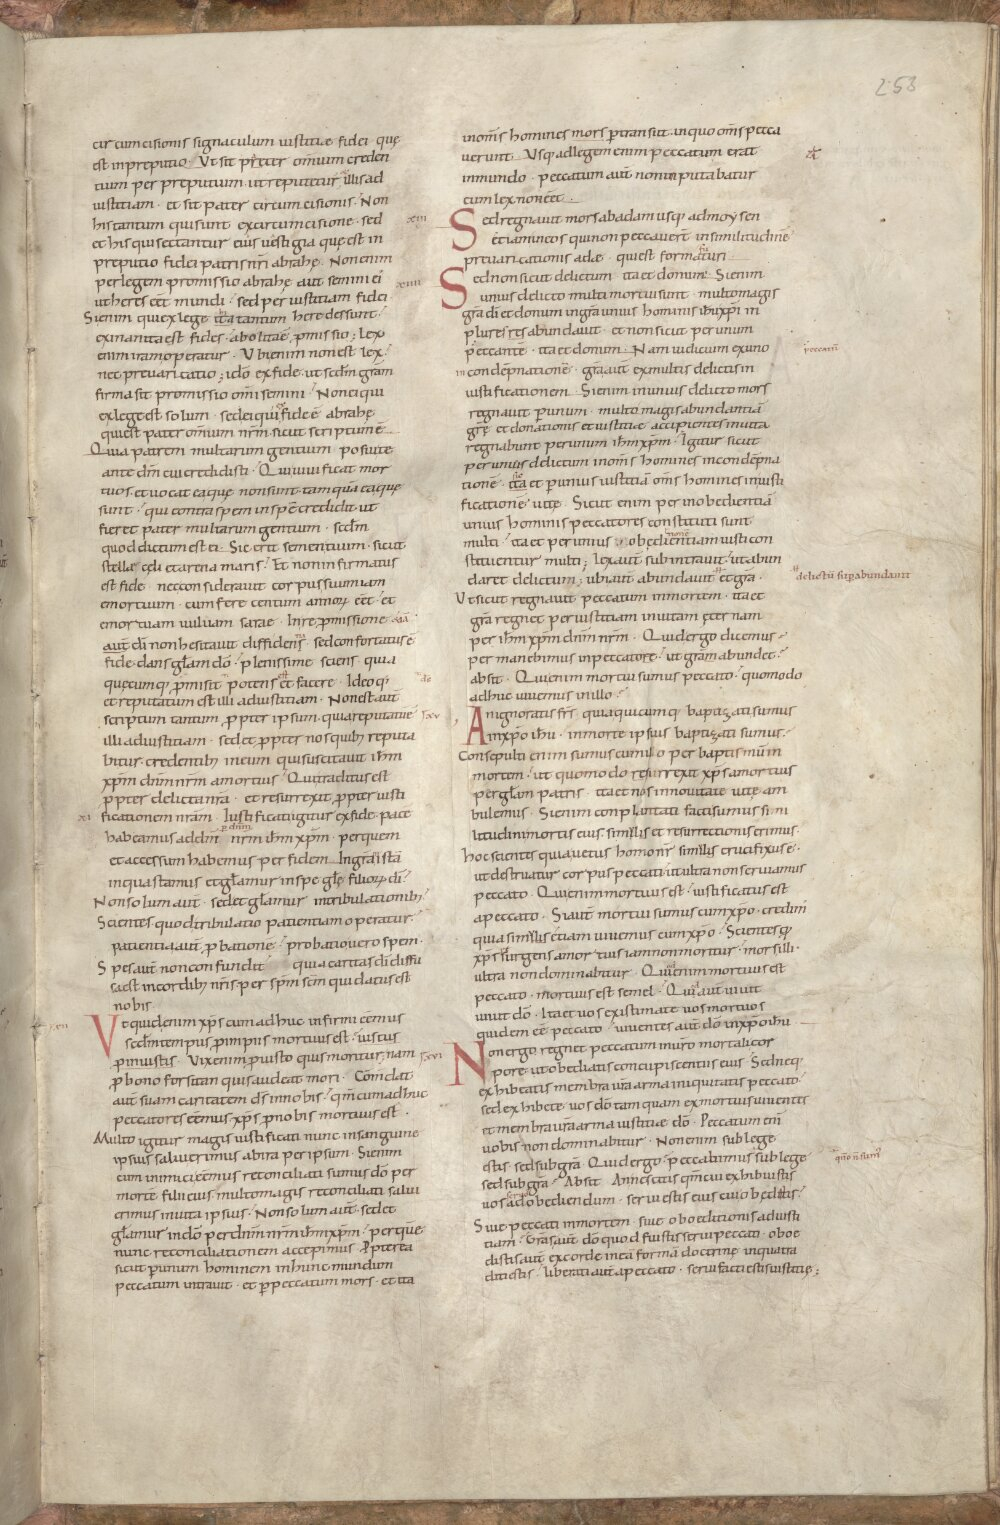 253
circumcisionis signaculum iustitiae fidei · quę
est inpreputio · Ut sit pater omnium creden
tium per preputium · ut reputetur & illis ad
iustitiam · et sit pater circumcisionis · Non
his tantum qui sunt excircumcisione · sed
et his qui sectantur eius uestigia quę est in
preputio fidei patris nr̄i abrahę · Non enim
per legem promissio abrahę aut semini ei
ut heres eēt mundi · sed per iustitiam fidei ·
Sienim qui exlege tantum heredes sunt ·
exinanita est fides · abolita ē promissio · lex
enim iram operatur · Ubi enim non est lex ·
nec preuaricatio ; ideo ex fide · ut scdm grām
firma sit promissio omī semini · Non ei qui
exlege est solum · sed ei qui ex fide ē abrahę
qui est pater omnium nrm̄ sicut scriptum ē
Quia patrem multarum gentium posui te
ante dm̄ cui credidisti · Qui uiuificat mor
tuos · et uocat ea quę non sunt · tamquam ea quę
sunt · qui contra spem in spē credidit ut
fieret pater multarum gentium · scdm̄
quod dictum est ei · Sic erit semen tuum · sicut
stellę cęli et arena maris · Et non infirmatus
est fide · nec considerauit corpus suum iam
emortuum · cum fere centum annorum eēt · et
emortuam uuluam sarae · In repromissione
aut̄ di non hesitauit diffidens · sed confortatus ē
fide · dans glam do · plenissime sciens quia
quęcumq; promisit potens est et facere · Ideo q;
et reputatum est illi ad iustitiam · Non est aut̄
scriptum tantum propter ipsum · quia reputatum ē
illi ad iustitiam · sed et propter nos quib; reputa
bitur · credentib; in eum qui suscitauit ihm̄
xpm̄ dnm̄ nrm̄ a mortuis · Qui traditus est
propter delicta nrā · et resurrexit propter iusti
xi
ficationem nrām · Iustificati igitur ex fide · pacē
habeamus ad dm̄ per dnm̄ nrm̄ ihm̄ xpm̄ · per quem
et accessum habemus per fidem · In grā istā
in qua stamus · et glamur in spe glę filiorum di ·
Non solum aut̄ · sed et glamur in tribulationib;
Scientes quod tribulatio patientiam operatur ·
patientia aut̄ probationē · probatio uero spem ·
Spes aut̄ non confundit quia caritas di diffu
sa est in cordib; nr̄is · per spm̄ scm̄ qui datus est
nobis ·
Ut quid enim xps̄ cum adhuc infirmi eēmus
scdm̄ tempus pro impiis mortuus est · iustus
pro iniustis · Vix enim pro iusto quis moritur · nam
pro bono forsitan quis audeat mori · Com̄dat
aut̄ suam caritatem ds̄ in nobis · qm̄ cum adhuc
peccatores eēmus xps̄ pro nobis mortuus est ·
Multo igitur magis iustificati nunc in sanguine
ipsius salui erimus ab ira per ipsum · Si enim
cum inimici eēmus reconciliati sumus do per
mortē filii eius · multo magis reconciliati salui
erimus in uita ipsius · Non solum aut̄ · sed et
glamur in do per dnm̄ nrm̄ ihm̄ xpm̄ · per quē
nunc reconciliationem accepimus · Propterea
sicut per unum hominem in hunc mundum
peccatum intrauit · et per peccatum mors · et ita
in om̄s homines mors pertransiit · in quo om̄s pecca
uerunt · Usq; ad legem enim peccatum erat
in mundo · peccatum aut̄ non inputabatur
cum lex non eēt ·
xiii
Sed regnauit mors ab adam usq; ad moysen
etiam in eos qui non peccauer̄ in similitudinē
preuaricationis adę · qui est forma futuri
xiiii
Sed non sicut delictum ita et donum · Si enim
unius delicto multi mortui sunt · multo magis
grā di et donum in grā unius hominis ihu xpi in
plures abundauit · et non sicut per unum
peccantē · ita et donum · Nam iudicium ex uno
peccatū
in condēpnationē · grā aut̄ ex multis delictis in
iustificationem · Si enim in unius delicto mors
regnauit per unum · multo magis abundantiā
grę et donationis et iustitiae accipientes in uita
regnabunt per unum ihm̄ xpm̄ · Igitur sicut
per unius delictum in om̄s homines in condēpna
tionē · ita et per unius iustitiā om̄s homines in iusti
ficationē uitę · Sicut enim per inobedientiā
unius hominis peccatores constituti sunt
multi · ita et per unius obędientiam iusti con
stituentur multi ; lex aut̄ subintrauit · ut abun
daret delictum ; ubi aut̄ abundauit et grā ·
delictū superabundauit
Ut sicut regnauit peccatum in mortem · ita et
grā regnet per iustitiam in uitam ęternam
per ihm̄ xpm̄ dnm̄ nrm̄ · Quid ergo dicemus ·
permanebimus in peccato · ut grā abundet ·
absit · Qui enim mortui sumus peccato · quomodo
adhuc uiuemus in illo ·
xv
An ignoratis frs̄ quia quicumq; baptizati sumus
in xpo ihu · in morte ipsius baptizati sumus ·
Consepulti enim sumus cum illo per baptismum in
mortem · ut quomodo resurrexit xps̄ a mortuis
per glam patris · ita et nos in nouitate uitę am
bulemus · Si enim conplantati facti sumus simi
litudini mortis eius · simul et resurrectionis erimus ·
hoc scientes quia uetus homo nr̄ simul crucifixus ē ·
ut destruatur corpus peccati · ut ultra non seruiamus
peccato · Qui enim mortuus est · iustificatus est
a peccato · Si aut̄ mortui sumus cum xpo · credim̄
quia simul etiam uiuemus cum xpo · Scientes q
xps̄ surgens a mortuis iam non moritur · mors illi
ultra non dominabitur · Quod enim mortuus est
peccato · mortuus est semel · Quod aut̄ uiuit
uiuit do · Ita et uos existimate uos mortuos
quidem eē peccato · uiuentes aut̄ do in xpo ihu
xvi
Non ergo regnet peccatum in uro mortali cor
pore · ut obediatis concupiscentiis eius · Sed neq;
exhibeatis membra ura arma iniquitatis peccato ·
sed exhibete uos do tamquam ex mortuis uiuentes
et membra ura arma iustitiae do · Peccatum enī
uobis non dominabitur · Non enim sub lege
estis · sed sub grā · Quid ergo · peccabimus · sub lege
qm̄o n̄ sum̄
sed sub grā · Absit · An nescitis qm̄ cui exhibuistis
uos ad obediendum · serui estis eius cui obeditis ·
Siue peccati in mortem · siue oboeditionis ad iusti
tiam · Gras aut̄ do quod fuistis serui peccati · oboe
distis aut̄ ex corde in eā formā doctrinę in qua tra
diti estis · liberati aut̄ a peccato · serui facti estis iustitię ;